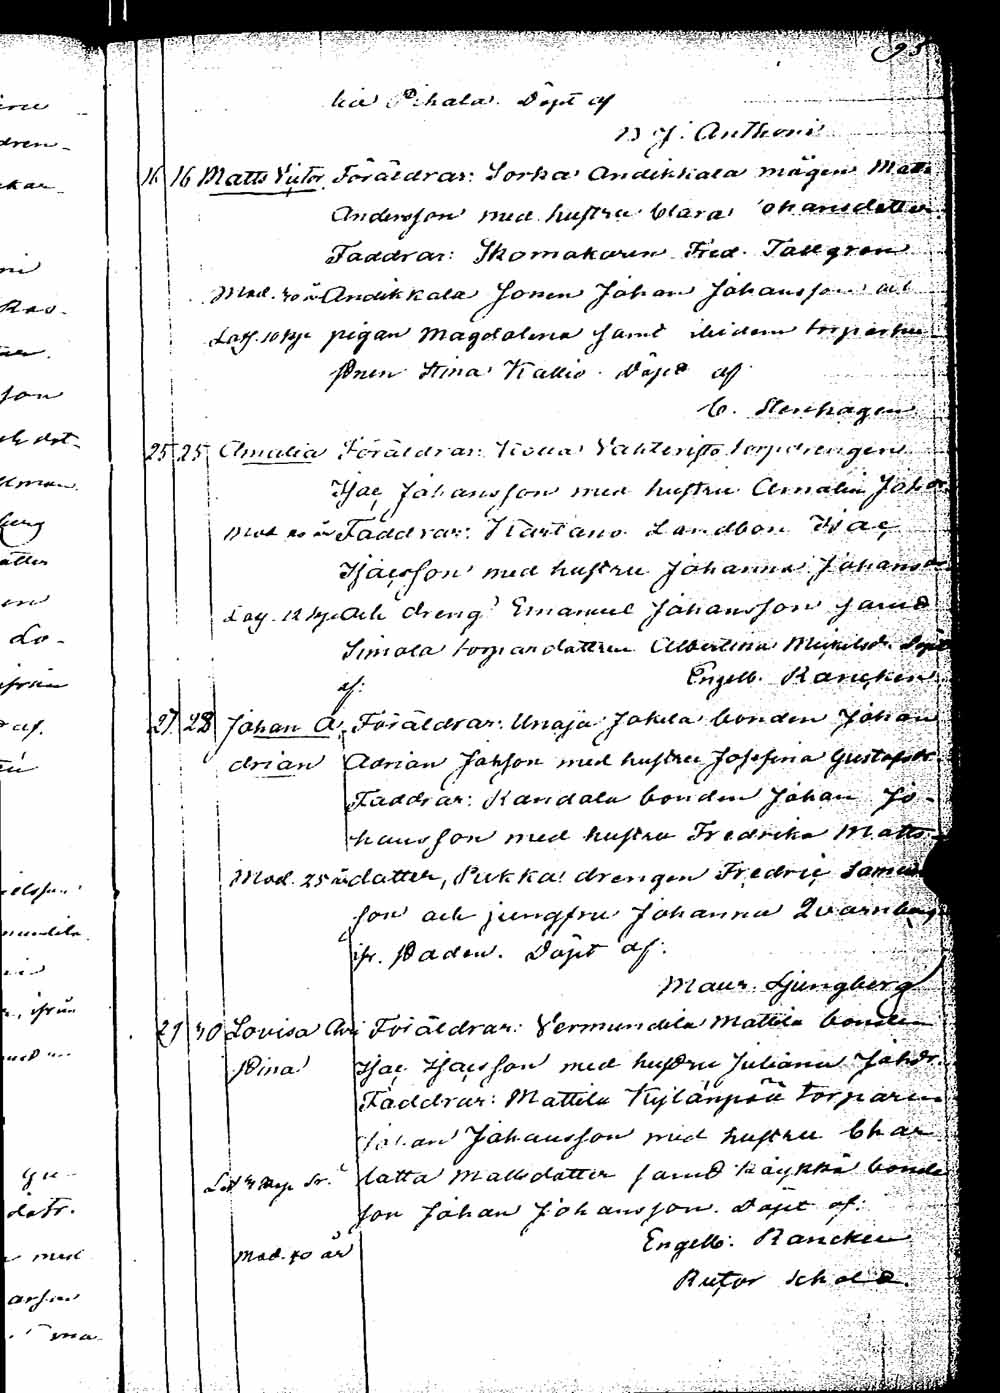 95
lia Pihala. Döpt af
B J. Anthoni
16 16 Matts Victor Föräldrar: Sorka Andikkala mågen Matts
Andersson med hustru Clara Johansdotter
Faddrar: Skomakaren Fred. Tallgren
Mod. 30 år Andikkala sonen Johan Johansson och
pigan Magdalena samt ibidem torparhu
stina Kallio. Döpt af
C. Stenhagen
25 25 Amalia Föräldrar: torpdrengen
Isac Johansson med hustru Amalia Johs
Mod år Faddrar: Kartano Landbon Isac
Isacsson med hustru Johanna Johansdr
och dreng Emanuel Johansson samt
Simola torparedottren Albertina Mickelsdr. Döpt
af: Engelb. Rancken
27 28 Johan A Föräldrar: Unaja Jakola bonden Johan
drian Adrian Johsson med hustru Josefina Gustafsdr.
Faddrar: Kandola bonden Johan Jo-
hansson med hustru Fredrika Matts
Mod. 25 år dotter, Pukka drengen Fredric Samuels
son och jungfru Johanna Qvarnberg
ifr. staden. Döpt af:
Maur. Ljungberg
29 30 Lovisa Chri Föräldrar: Vermundila Mattila bonden
stina Isac Isacsson med hustru Juliana Johsdr.
Faddrar: Mattila Kylänpää torparen
Johan Johansson med hustru Char
lotta Mattsdotter samt Käykkä bonde
son Johan Johansson. Döpt af:
Mod. 40 år Engelb. Rancken